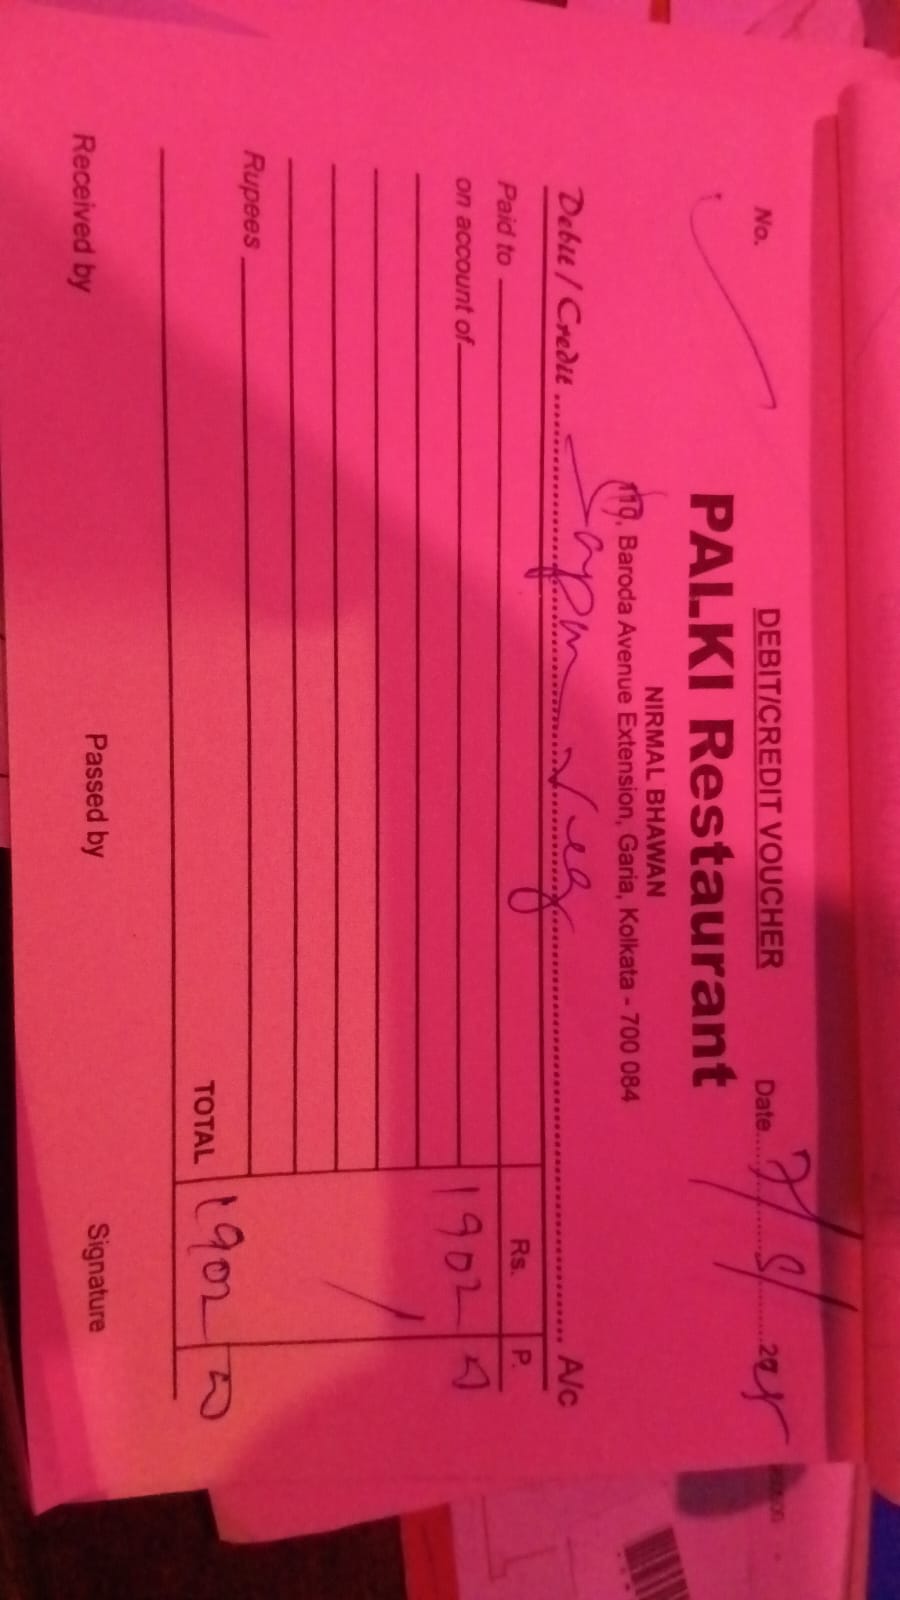 DEBIT/CREDIT VOUCHER
No. Date 7/5/2025
PALKI Restaurant
NIRMAL BHAWAN
119, Baroda Avenue Extension, Garia, Kolkata - 700 084
Debit / Credit A/c
Paid to Rs. P.
on account of 1902
Rupees
TOTAL 1902
Received by Passed by Signature